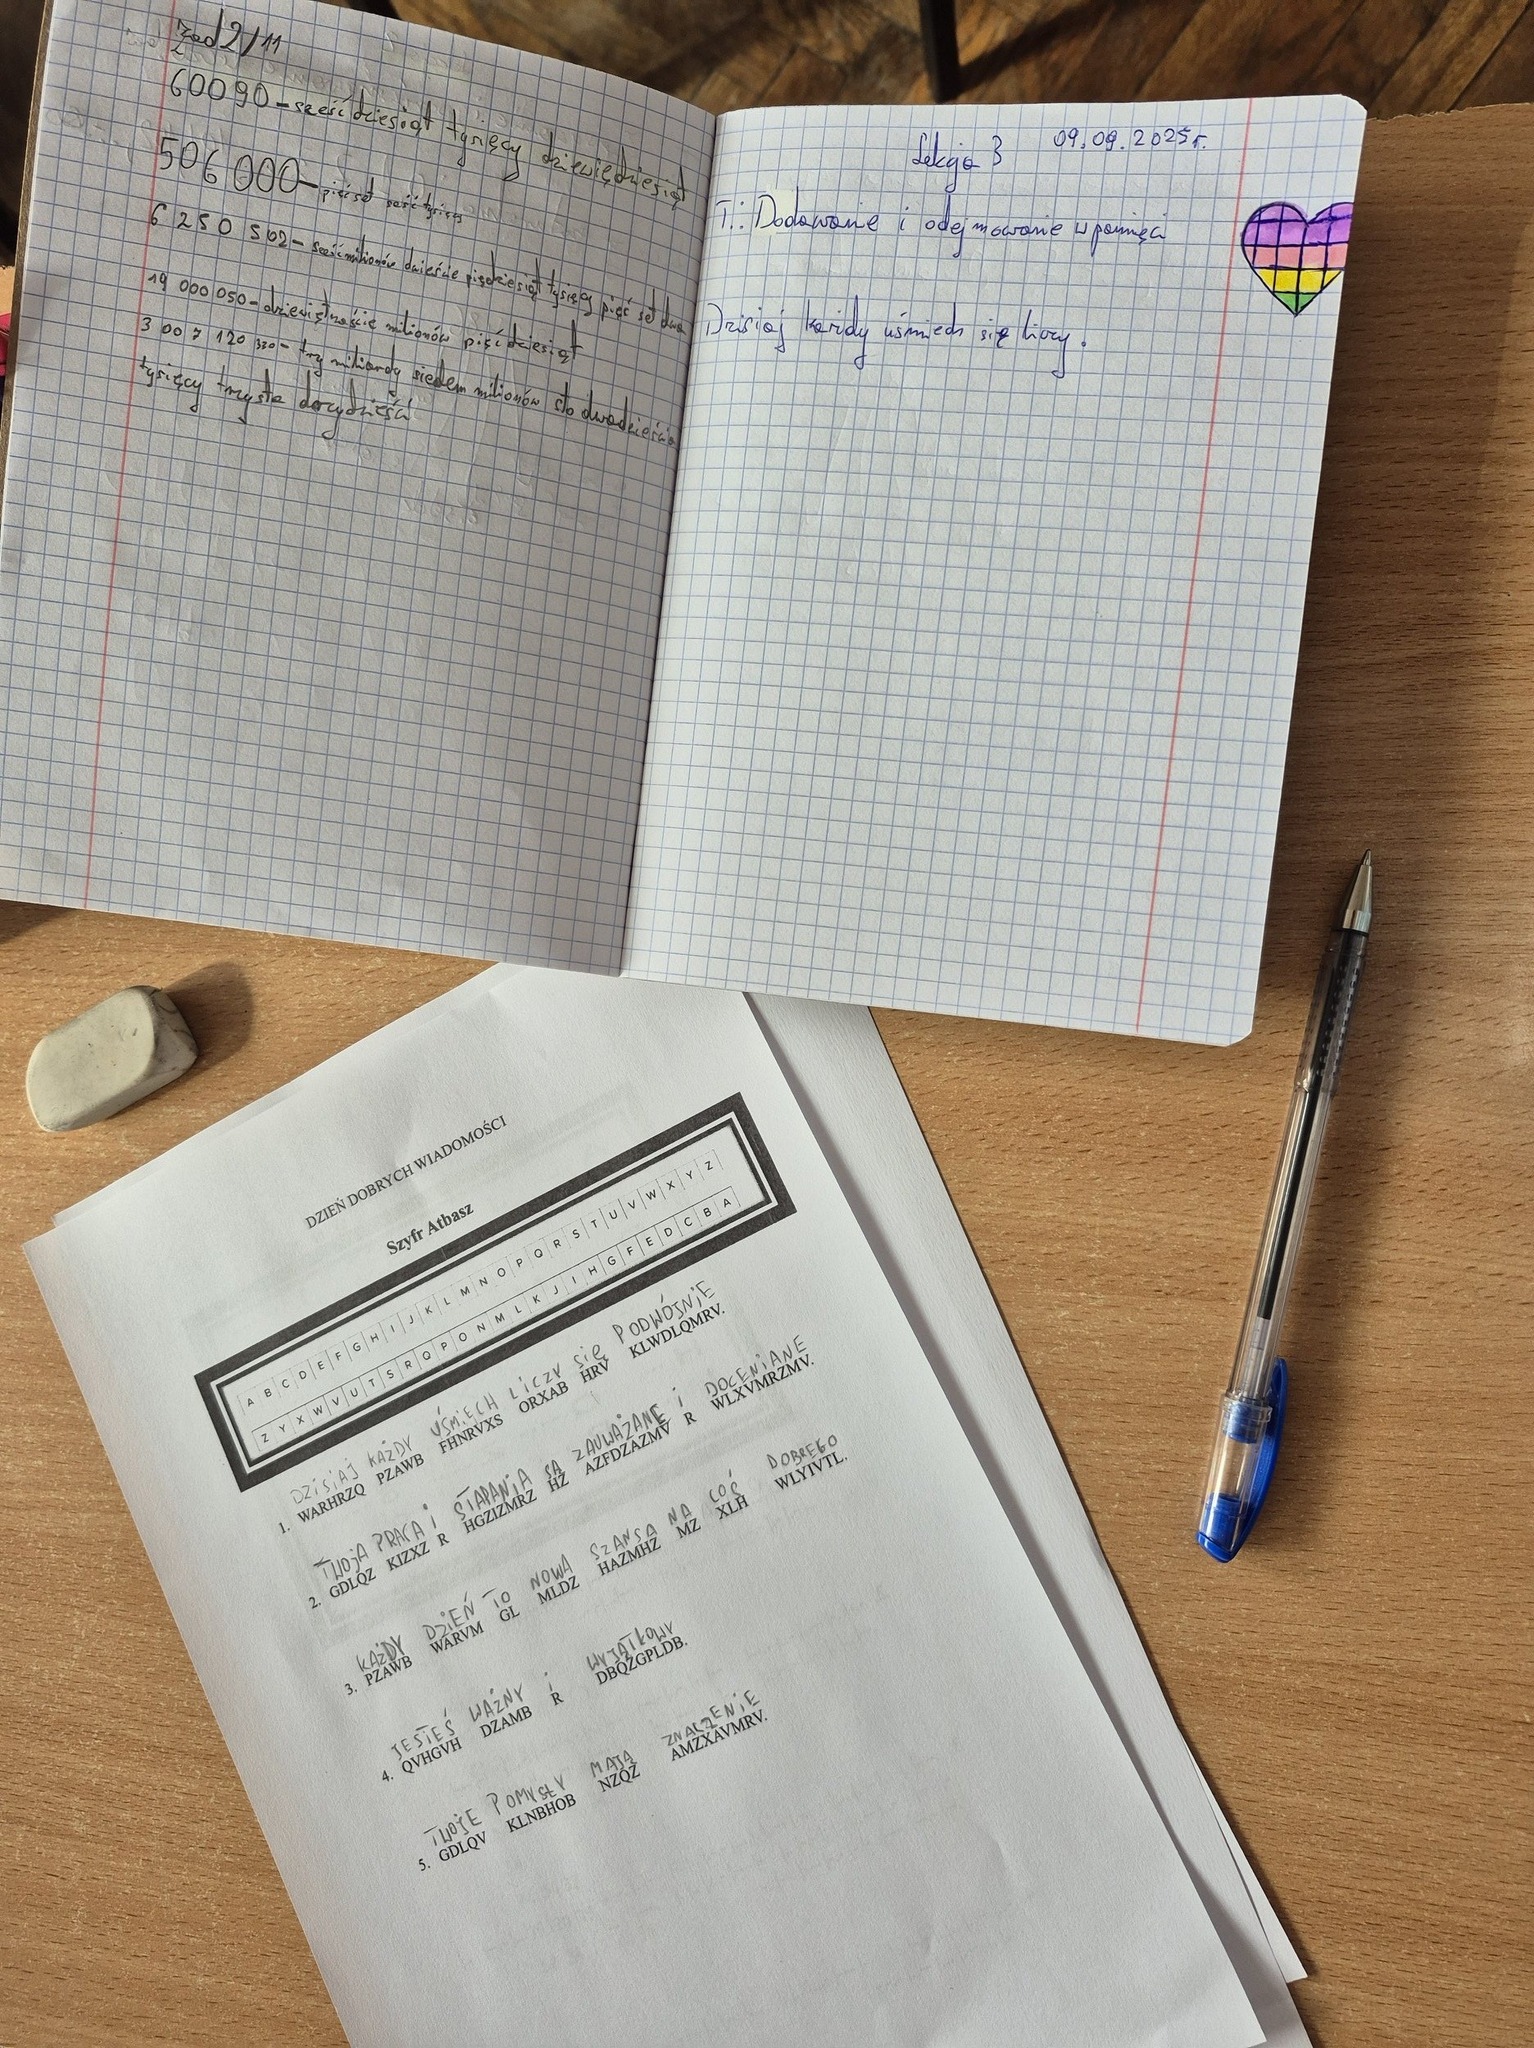 zad 2/11
60090 - sześćdziesiąt tysięcy dziewięćdziesiąt
506 000 - pięćset sześć tysięcy
6 250 502 - sześć milionów dwieście pięćdziesiąt tysięcy pięć set dwa
19 000 050 - dziewiętnaście milionów pięćdziesiąt
3 007 120 330 - trzy miliardy siedem milionów sto dwadzieścia
tysięcy trzysta
Lekcja 3 09.09.2025r.
T.: Dodawane i odejmowanie w pamięci
Dzisiaj każdy uśmiech się liczy.
DZIEŃ DOBRYCH WIADOMOŚCI
Szyfr Atbasz
A B C D E F G H I J K L M N O P Q R S T U V W X Y Z
Z Y X W V U T S R Q P O N M L K J I H G F E D C B A
DZISIAJ KAŻDY UŚMIECH LICZY SIĘ PODWÓJNIE
1. WARHRZQ PZAWB FHNRVXS ORXAB HRV KLWDLQMRV.
TWOJA PRACA I STARANIA SĄ ZAUWAŻANE I DOCENIANE
2. GDLQZ KIZXZ R HGZIZMRZ HZ AZFDZAZMV R WLXVMRZMV.
KAŻDY DZIEŃ TO NOWA SZANSA NA COŚ DOBREGO
3. PZAWB WARVM GL MLDZ HAZMHZ MZ XLH WLYIVTL.
JESTEŚ WAŻNY I WYJĄTKOWY
4. QVHGVH DZAMB R DBQZGPLDB.
TWOJE POMYSŁY MAJĄ ZNACZENIE
5. GDLQV KLNBHOB NZQZ AMZXAVMRV.